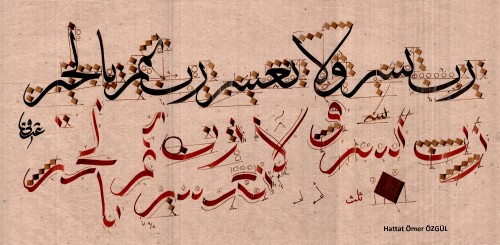 رب يسر ولا تعسر رب تمم بالخير
رب يسر ولا تعسر رب تمم بالخير
ثلث
Hattat Ömer ÖZGÜL